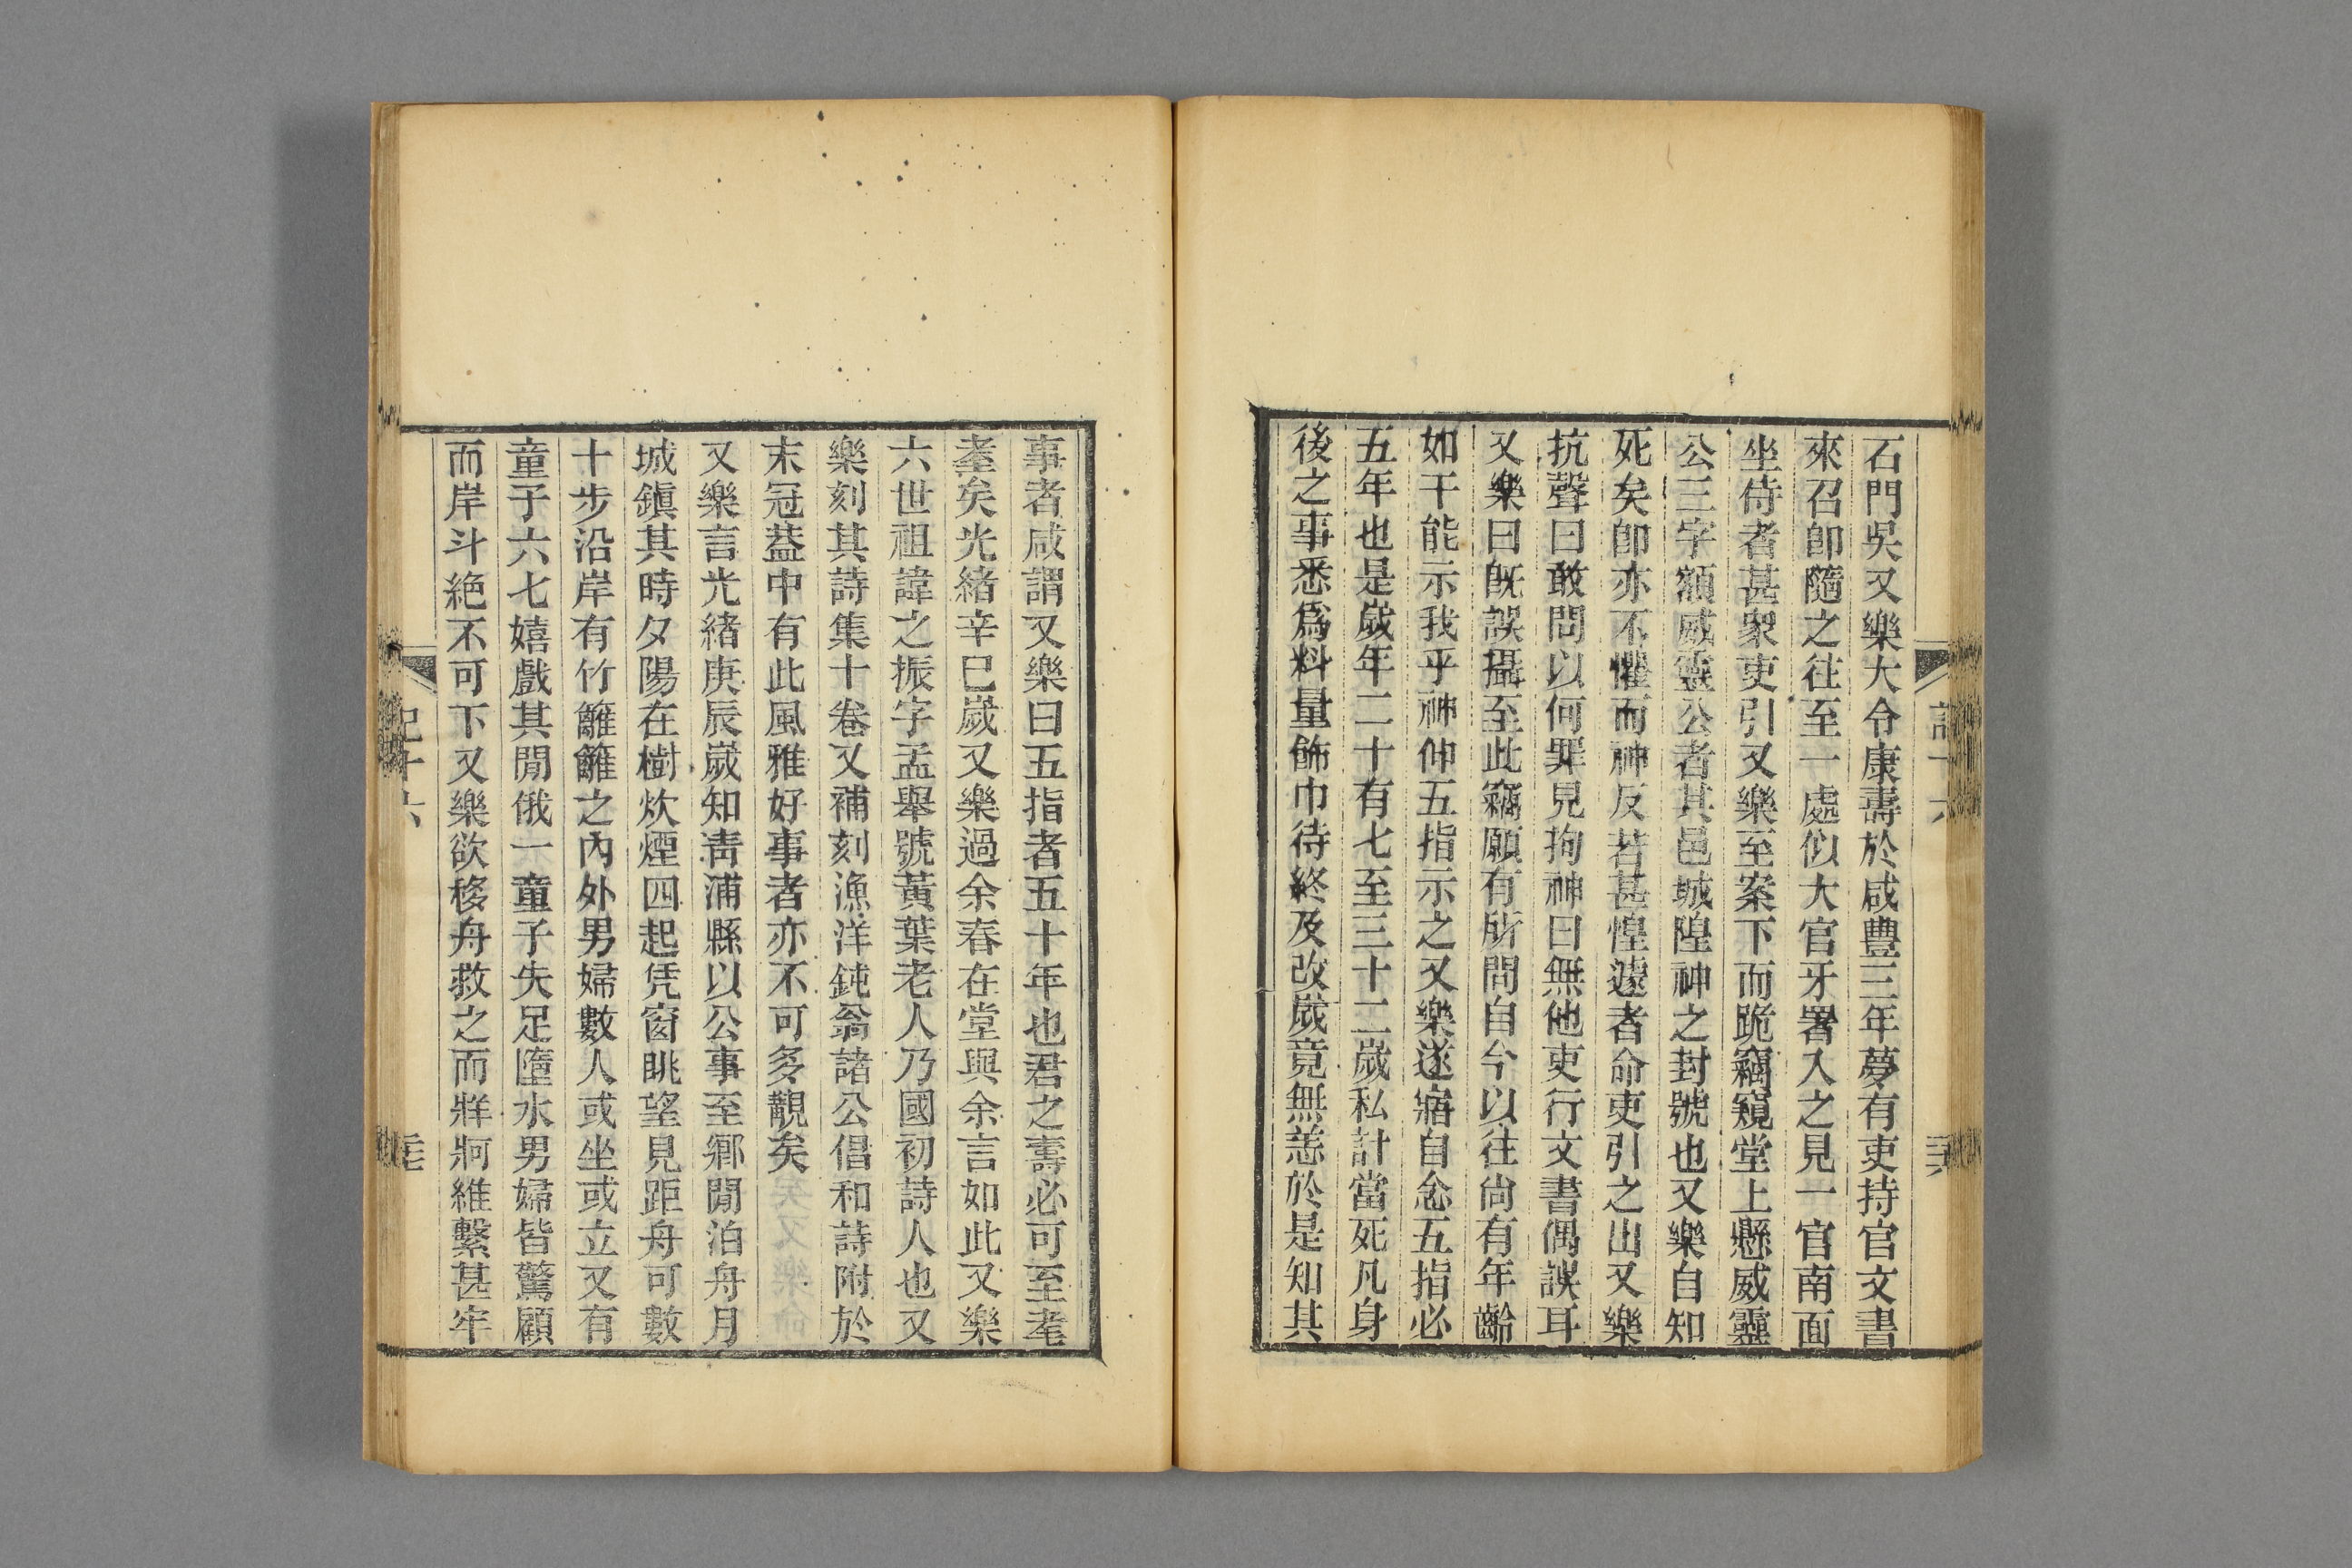 石門吳又樂大令康壽於咸豐三年夢有吏持官文書
來召卽隨之往至一處似大官牙署入之見一官南面
坐侍者甚衆吏引又樂至案下而跪竊窺堂上懸威靈
公三字額威靈公者其邑城隍神之封號也又樂自知
死矣卽亦不懼而神反若甚惶遽者命吏引之出又樂
抗聲曰敢問以何罪見拘神曰無他吏行文書偶誤耳
又樂曰旣誤攝至此竊願有所問自今以往尙有年齡
如干能示我乎神伸五指示之又樂遂寤自念五指必
五年也是歲年二十有七至三十二歲私計當死凡身
後之事悉爲料量飾巾待終及改歲竟無恙於是知其
事者咸謂又樂曰五指者五十年也君之壽必可至耄
耋矣光緖辛巳歲又樂過余春在堂與余言如此又樂
六世祖諱之振字孟舉號黃葉老人乃國初詩人也又
樂刻其詩集十卷又補刻漁洋鈍翁諸公倡和詩附於
末冠葢中有此風雅好事者亦不可多覯矣
又樂言光緖庚辰歲知靑浦縣以公事至鄉閒泊舟月
城鎭其時夕陽在樹炊煙四起凭窗眺望見距舟可數
十步沿岸有竹籬籬之內外男婦數人或坐或立又有
童子六七嬉戲其閒俄一童子失足墮水男婦皆驚顧
而岸斗絶不可下又樂欲移舟救之而牂牁維繫甚牢
記十六